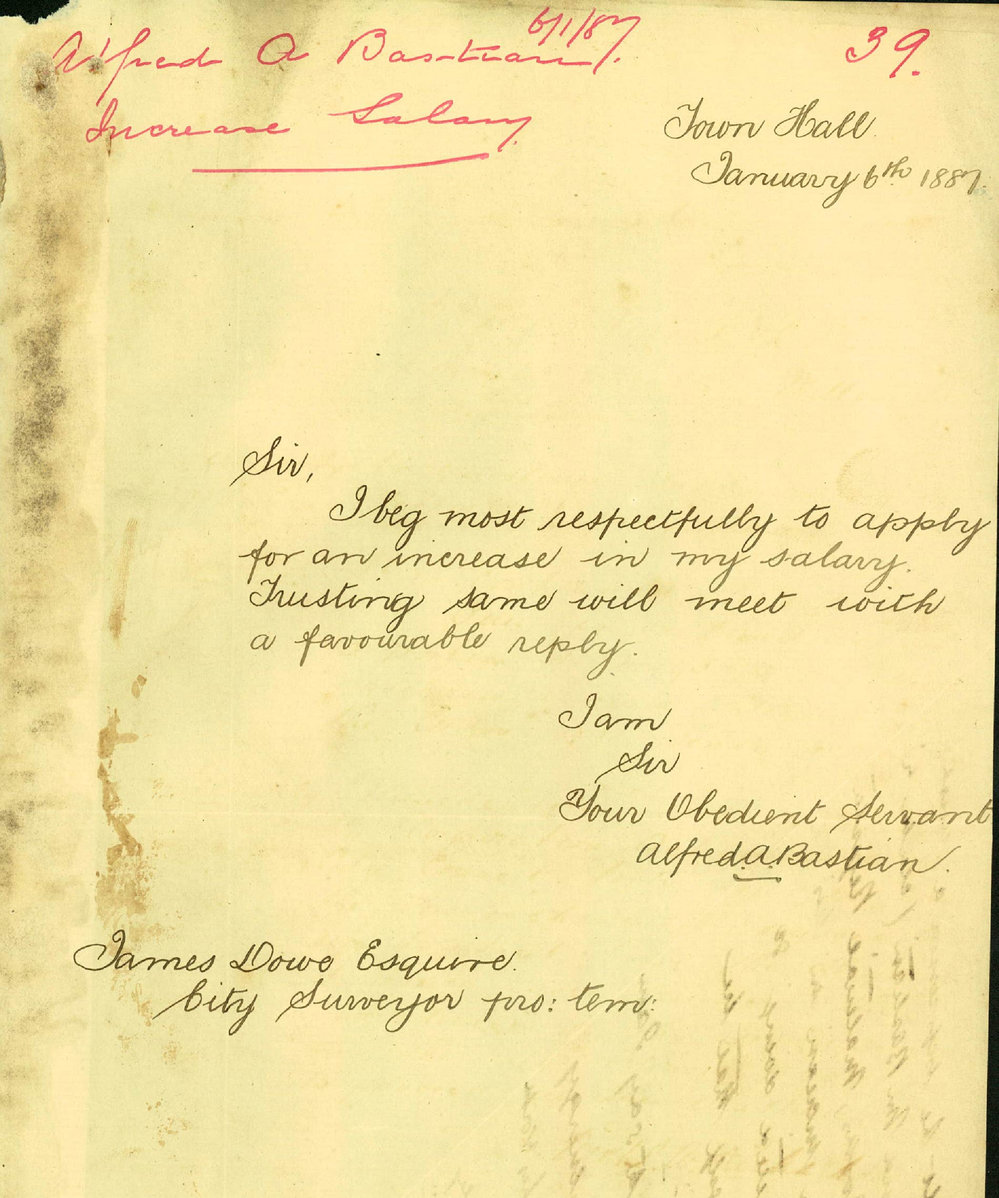 6/1/87
Alfred A Bastian.
39.
Increase Salary.
Town Hall.
January 6th 1887.
Sir,
I beg most respectfully to apply
for an increase in my salary.
Trusting same will meet with
a favourable reply.
I am
Sir
Your Obedient Servant
Alfred. A. Bastian.
James Dowe Esquire.
City Surveyor pro: tem: